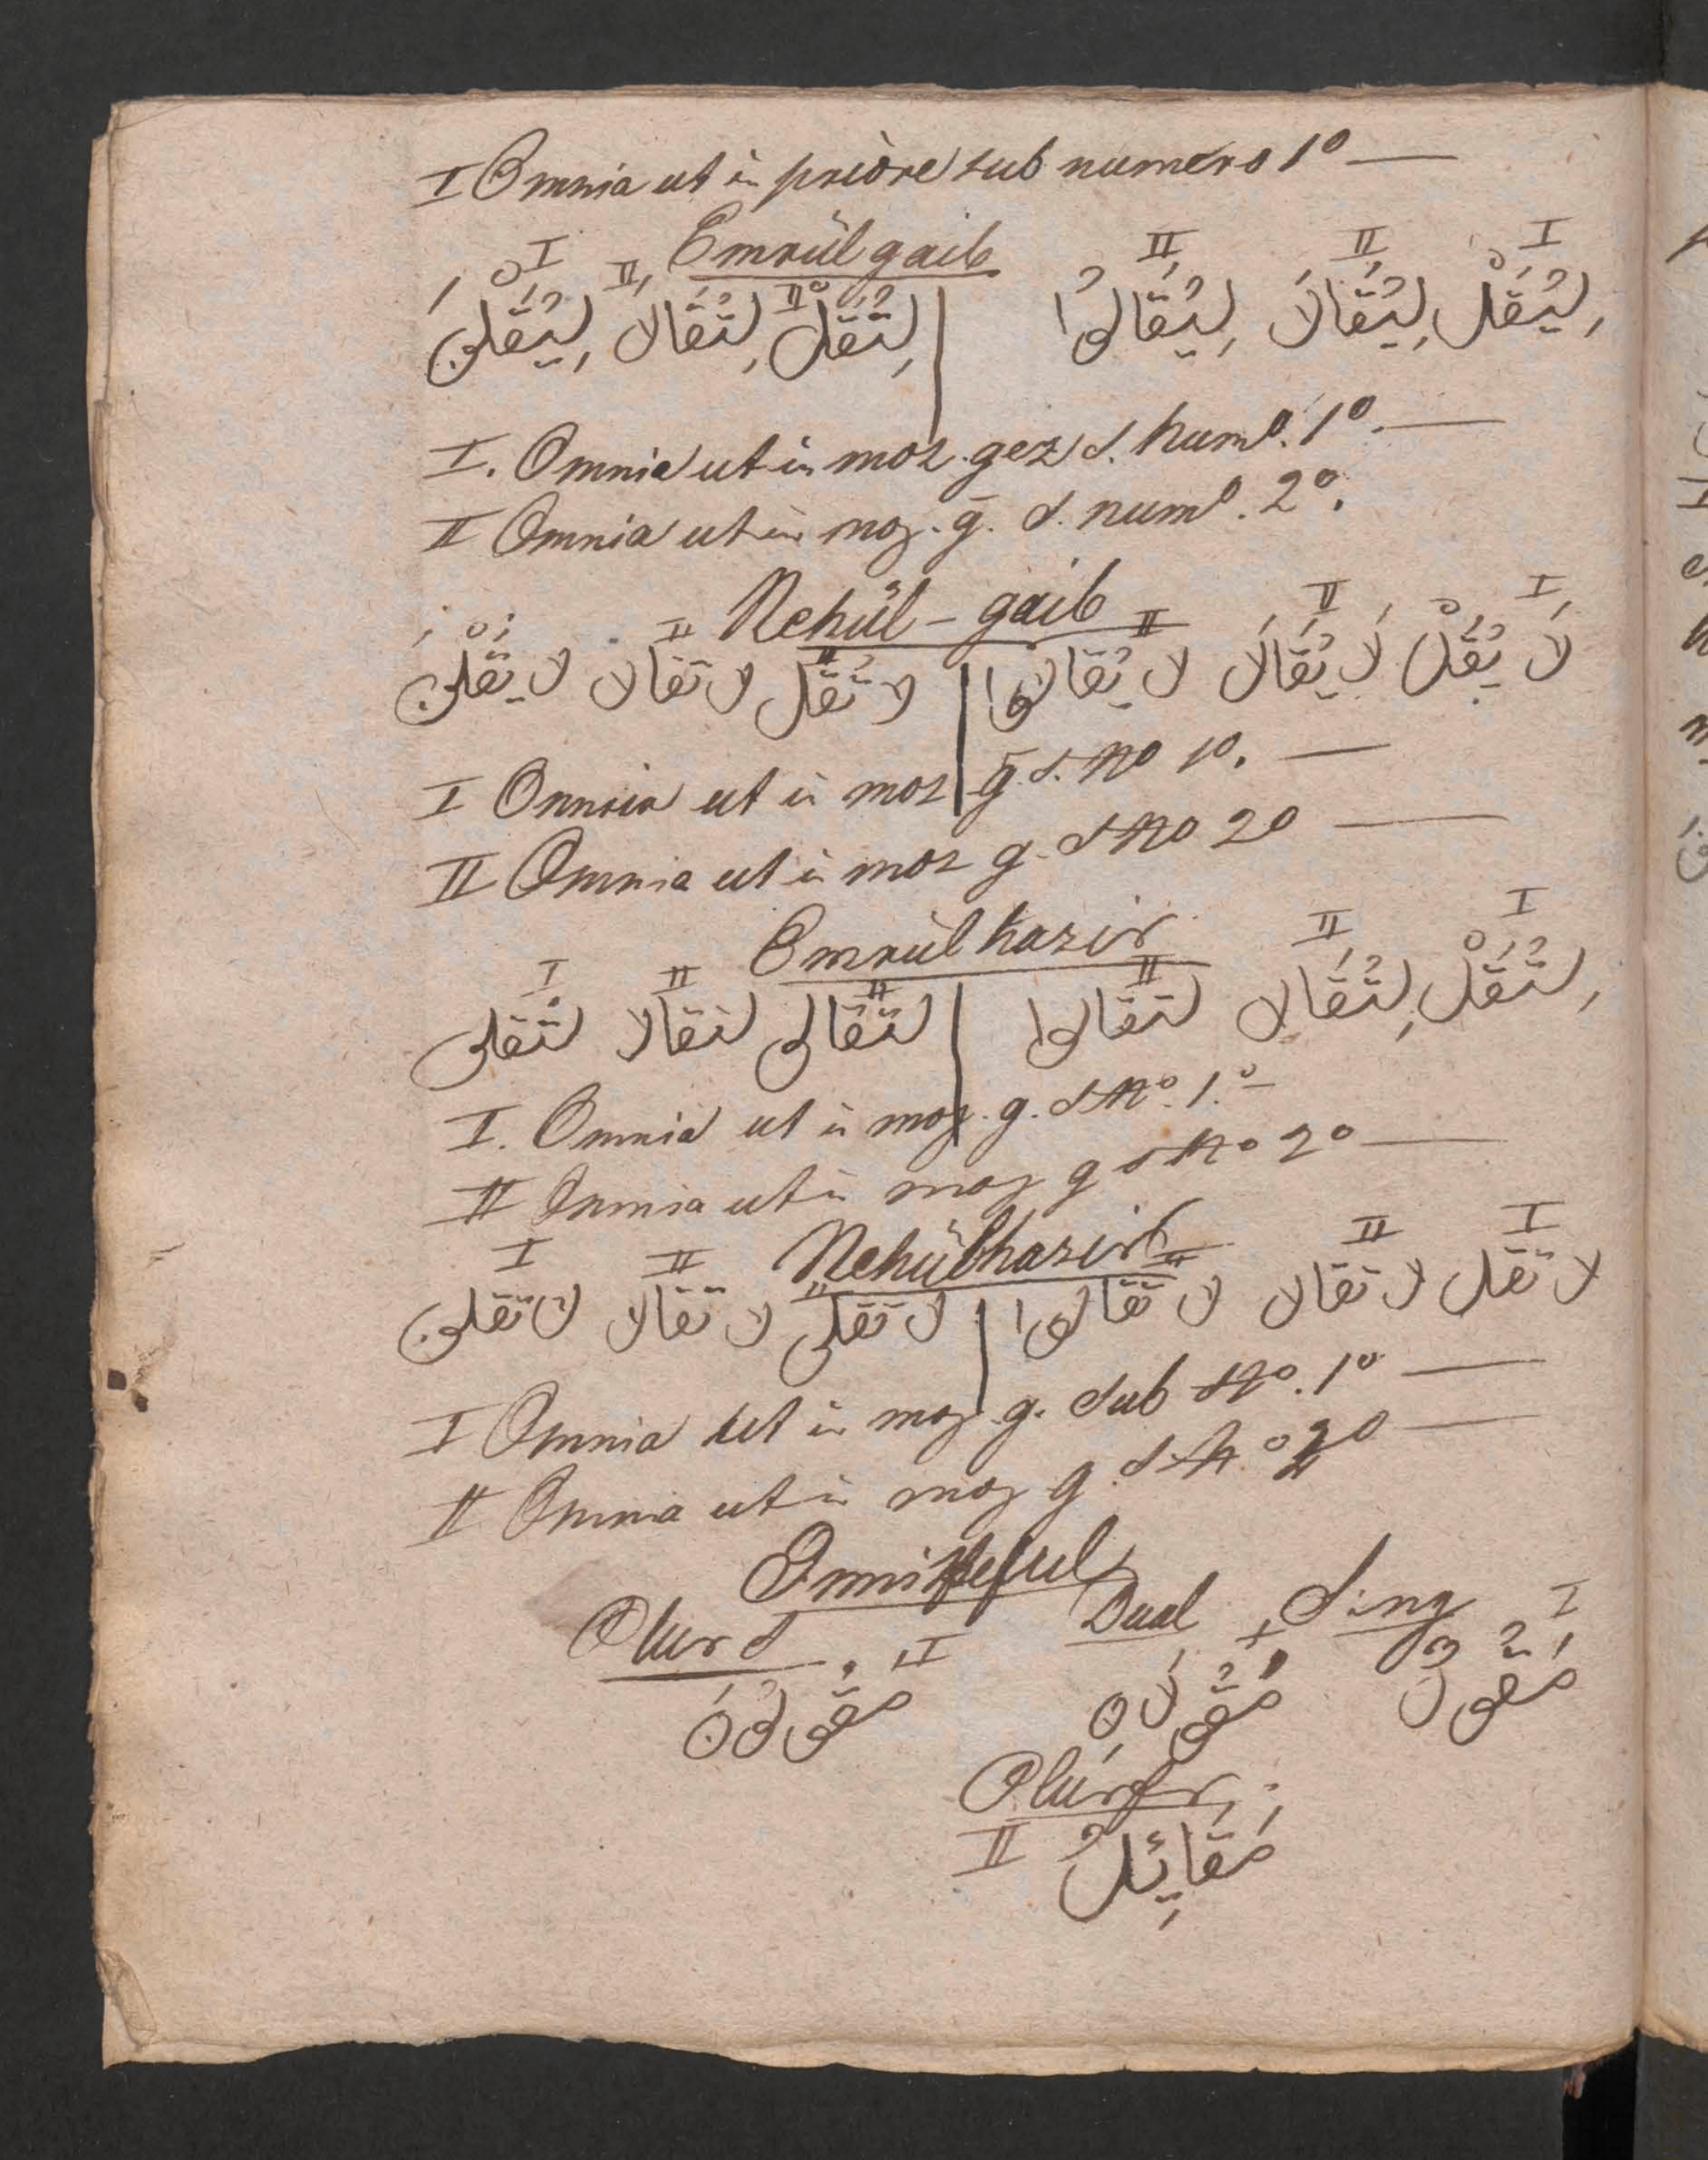 I Omnia ut in priore sub numero 1º —
Emrül gaib
I II II I II II
لِيُقَلْ لِيُقَالَا لِيُقَالُوا | لِتُقَلْ لِتُقَالَا لِيُقَلْنَ
I. Omnia ut in moz. gez s. Numº. 1º. —
II Omnia ut in moz. g. s. numº. 2º.
Nehül - gaib
I II II II II
لَا يُقَلْ لَا يُقَالَا لا يُقَالوا | لا تُقَل لا تقالا لا يُقَلْنَ
I Omnia ut in moz g. s. Nº 1º. —
II Omnia ut in moz g. s Nº 2º —
Emrül hazir
I II II II II I
لِتُقَلْ لِتُقَالا لتقالوا | لتقالى لتقالا لتقلن
I. Omnia ut in moz. g. s Nº. 1.º —
II Omnia ut in moz g s Nº 2º —
Nehül hazir
I II II II II I
لا تقل لا تقالا لا تقالوا | لا تقلى لا تقالا لا تقلن
I Omnia ut in moz. g. sub Nº. 1º —
II Omnia ut in moz g. s Nº 2º —
Ismi Meful
Sing Dual Plur S
I II
مَقُولٌ مَقُولَانِ مَقُولُونَ
Plur fr.
II
مَقَائِلُ